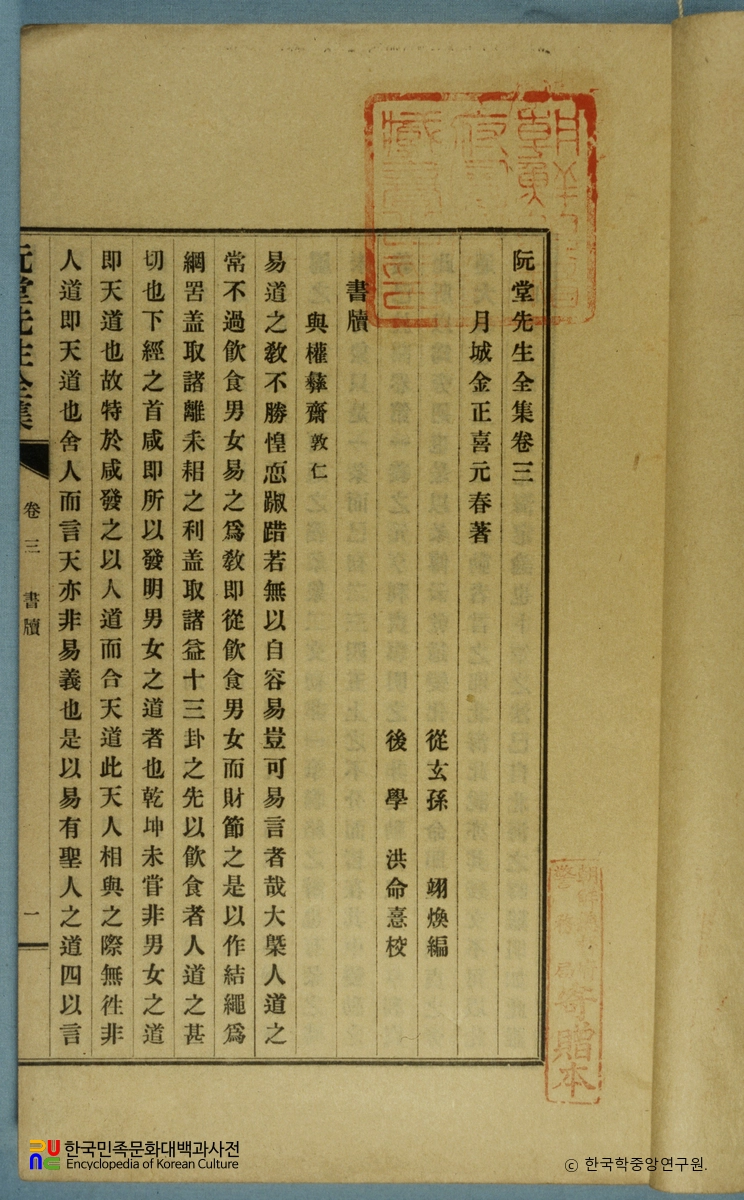 阮堂先生全集卷三
月城金正喜元春著
從玄孫 翊煥編
後學 洪命憙校
書牘
與權彝齋敦仁
易道之敎不勝惶恧踧踖若無以自容易豈可易言者哉大槩人道之
常不過飮食男女易之爲敎即從飮食男女而財節之是以作結繩爲
網罟盖取諸離耒耜之利盖取諸益十三卦之先以飮食者人道之甚
切也下經之首咸即所以發明男女之道者也乾坤未甞非男女之道
即天道也故特於咸發之以人道而合天道此天人相與之際無徃非
人道即天道也舍人而言天亦非易義也是以易有聖人之道四以言
阮堂先生全集
卷三 書牘
一
寄贈本
한국민족문화대백과사전
Encyclopedia of Korean Culture
© 한국학중앙연구원.